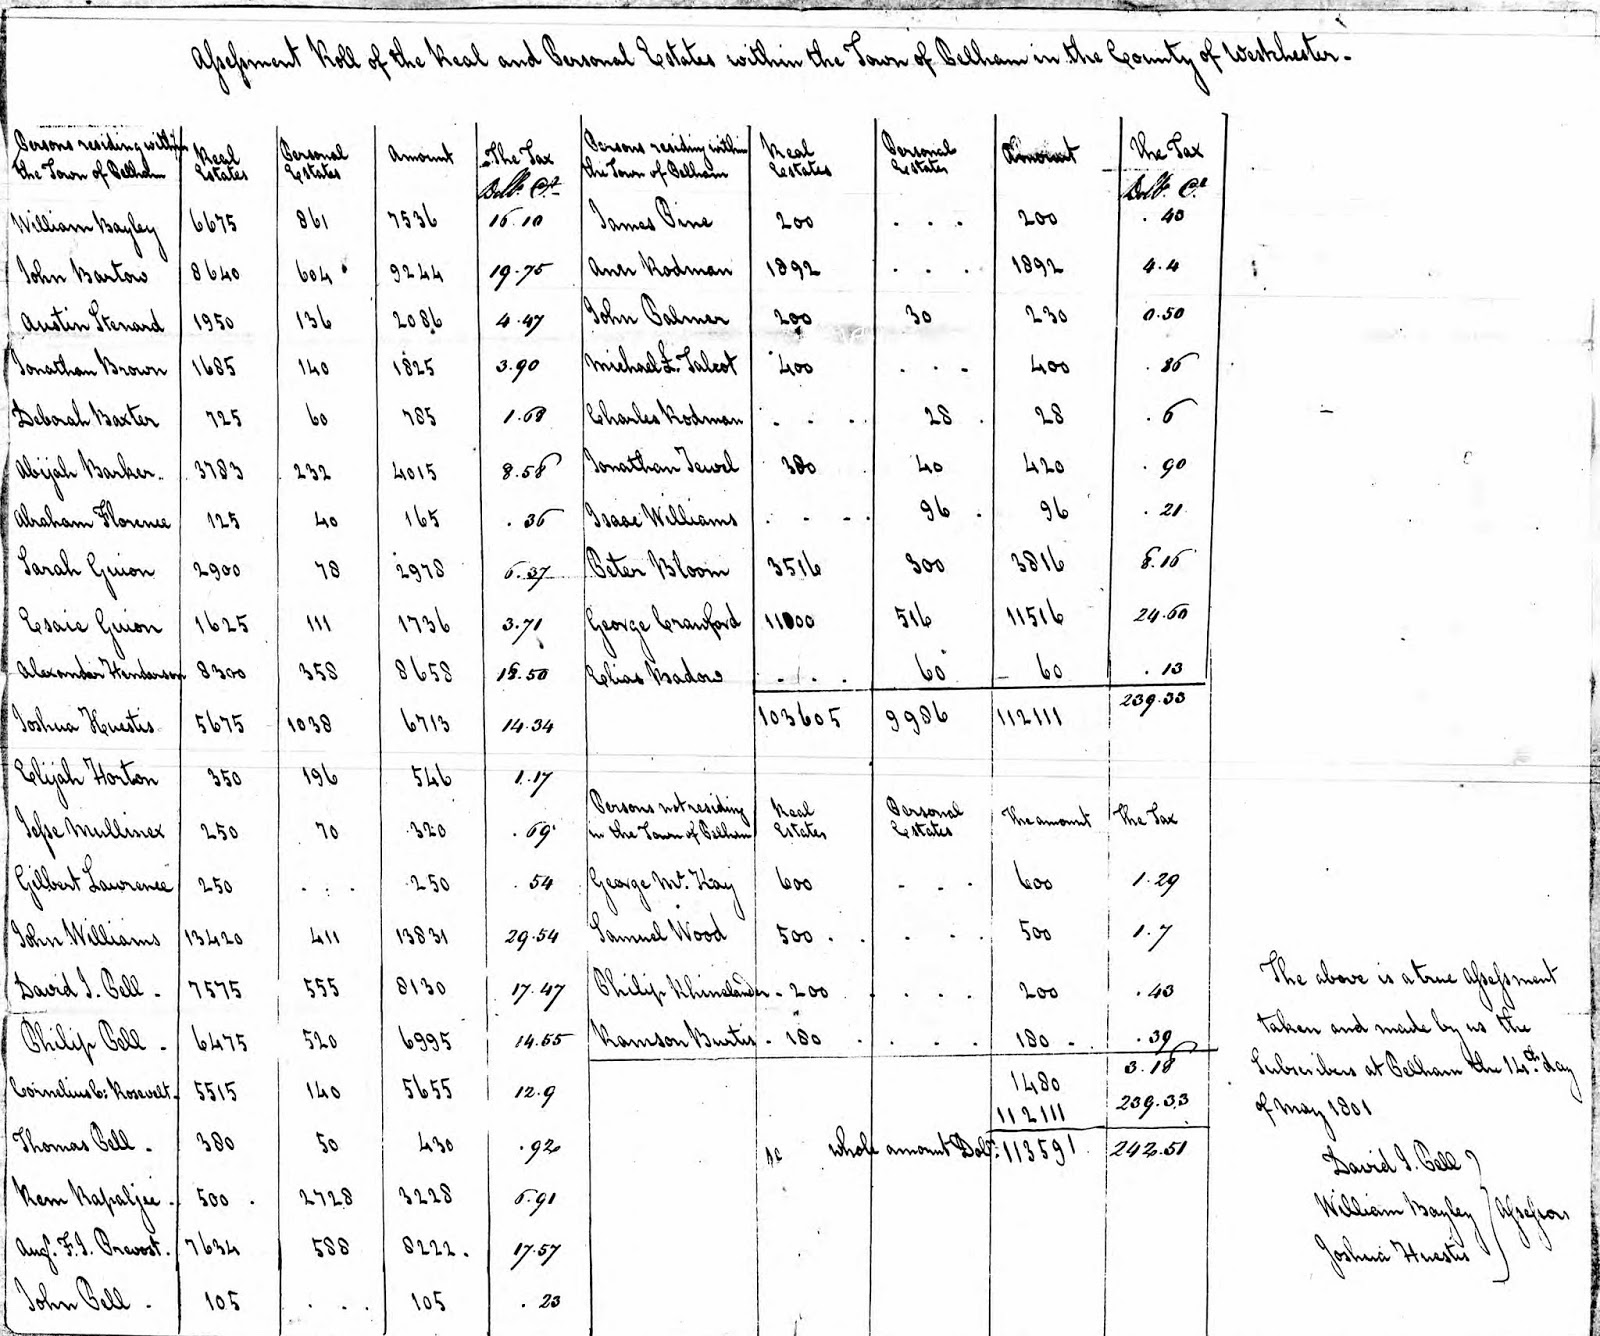 Assessment Roll of the Real and Personal Estates within the Town of Pelham in the County of Westchester.
Persons residing within the Town of Pelham | Real Estates | Personal Estates | Amount | The Tax Dolls. Cts.
William Bayley 6675 861 7536 16.10
John Bartow 8640 604 9244 19.75
Austin Stenard 1950 136 2086 4.47
Jonathan Brown 1685 140 1825 3.90
Deborah Baxter 725 60 785 1.68
Abijah Barker 3783 232 4015 8.58
Abraham Florence 125 40 165 .36
Sarah Guion 2900 78 2978 6.37
Esaie Guion 1625 111 1736 3.71
Alexander Henderson 8300 358 8658 18.50
Joshua Huestis 5675 1038 6713 14.34
Elijah Horton 350 196 546 1.17
Jesse Mullinex 250 70 320 .69
Gilbert Lawrence 250 . . . 250 .54
John Williams 13420 411 13831 29.54
David J. Pell 7575 555 8130 17.47
Philip Pell 6475 520 6995 14.55
Cornelius C: Rosevelt 5515 140 5655 12.9
Thomas Pell 380 50 430 .92
Rem Rapaljee 500 2728 3228 6.91
Augs. F. J. Prevost 7634 588 8222 17.57
John Pell 105 . . . 105 .23
Persons residing within the Town of Pelham | Real Estates | Personal Estates | Amount | The Tax Dolls. Cts.
James Pine 200 . . . 200 .43
Ann Rodman 1892 . . . 1892 4.4
John Palmer 200 30 230 0.50
Michael L. Talcot 400 . . . 400 .86
Charles Rodman . . . 28 28 .6
Jonathan Jewel 380 40 420 .90
Isaac Williams . . . 96 96 .21
Peter Bloom 3516 300 3816 8.16
George Crawford 11000 516 11516 24.60
Elias Badow . . . 60 60 .13
103605 9986 112111 239.33
Persons not residing in the Town of Pelham | Real Estates | Personal Estates | The amount | The Tax
George Mc. Kay 600 . . . 600 1.29
Samuel Wood 500 . . . 500 1.7
Philip Rhinelander 200 . . . 200 .43
Ramson Burtis 180 . . . 180 .39
1480 3.18
112111 239.33
whole amount Dolls: 113591 242.51
The above is a true Assessment
taken and made by us the
Subscribers at Pelham the 14th. day
of May 1801
David J. Pell
William Bayley
Joshua Huestis
Assessors